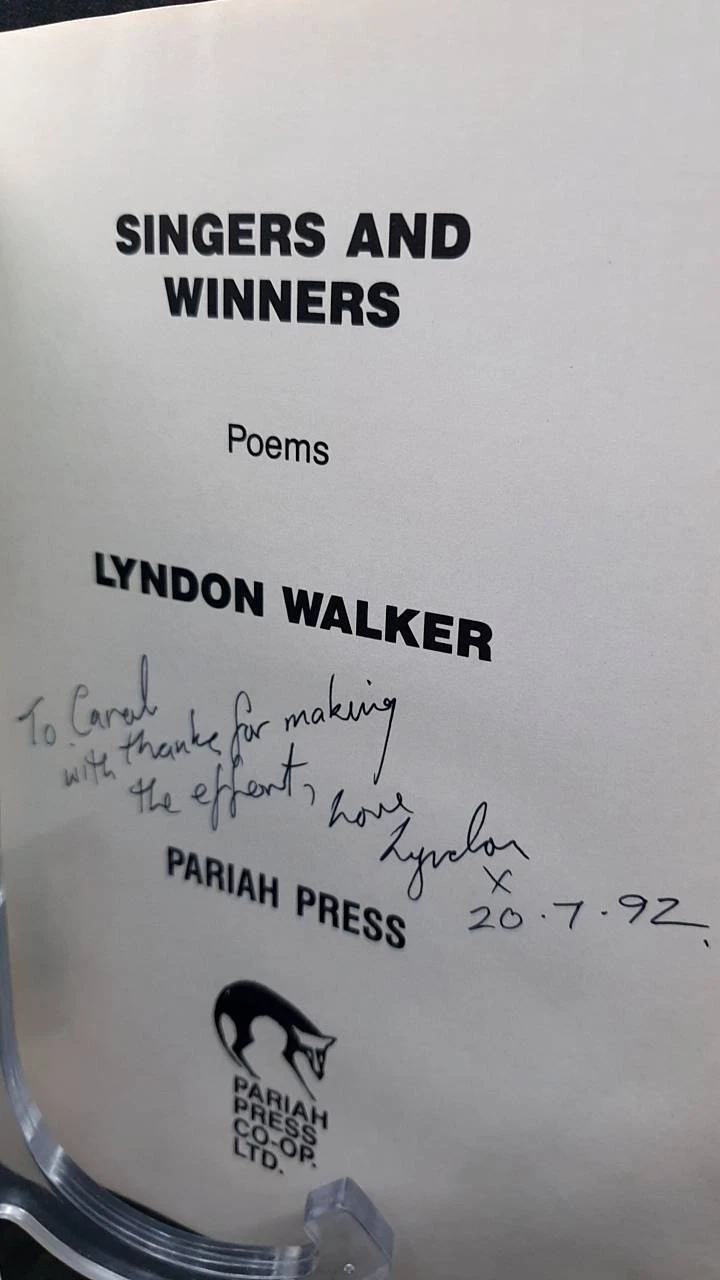 SINGERS AND
WINNERS
Poems
LYNDON WALKER
To Carol
with thanks for making
the effort, love
Lyndon
x
20.7.92.
PARIAH PRESS
PARIAH
PRESS
CO-OP.
LTD.